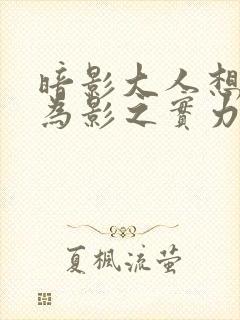 暗影大人想
為影之實力
夏楓流螢